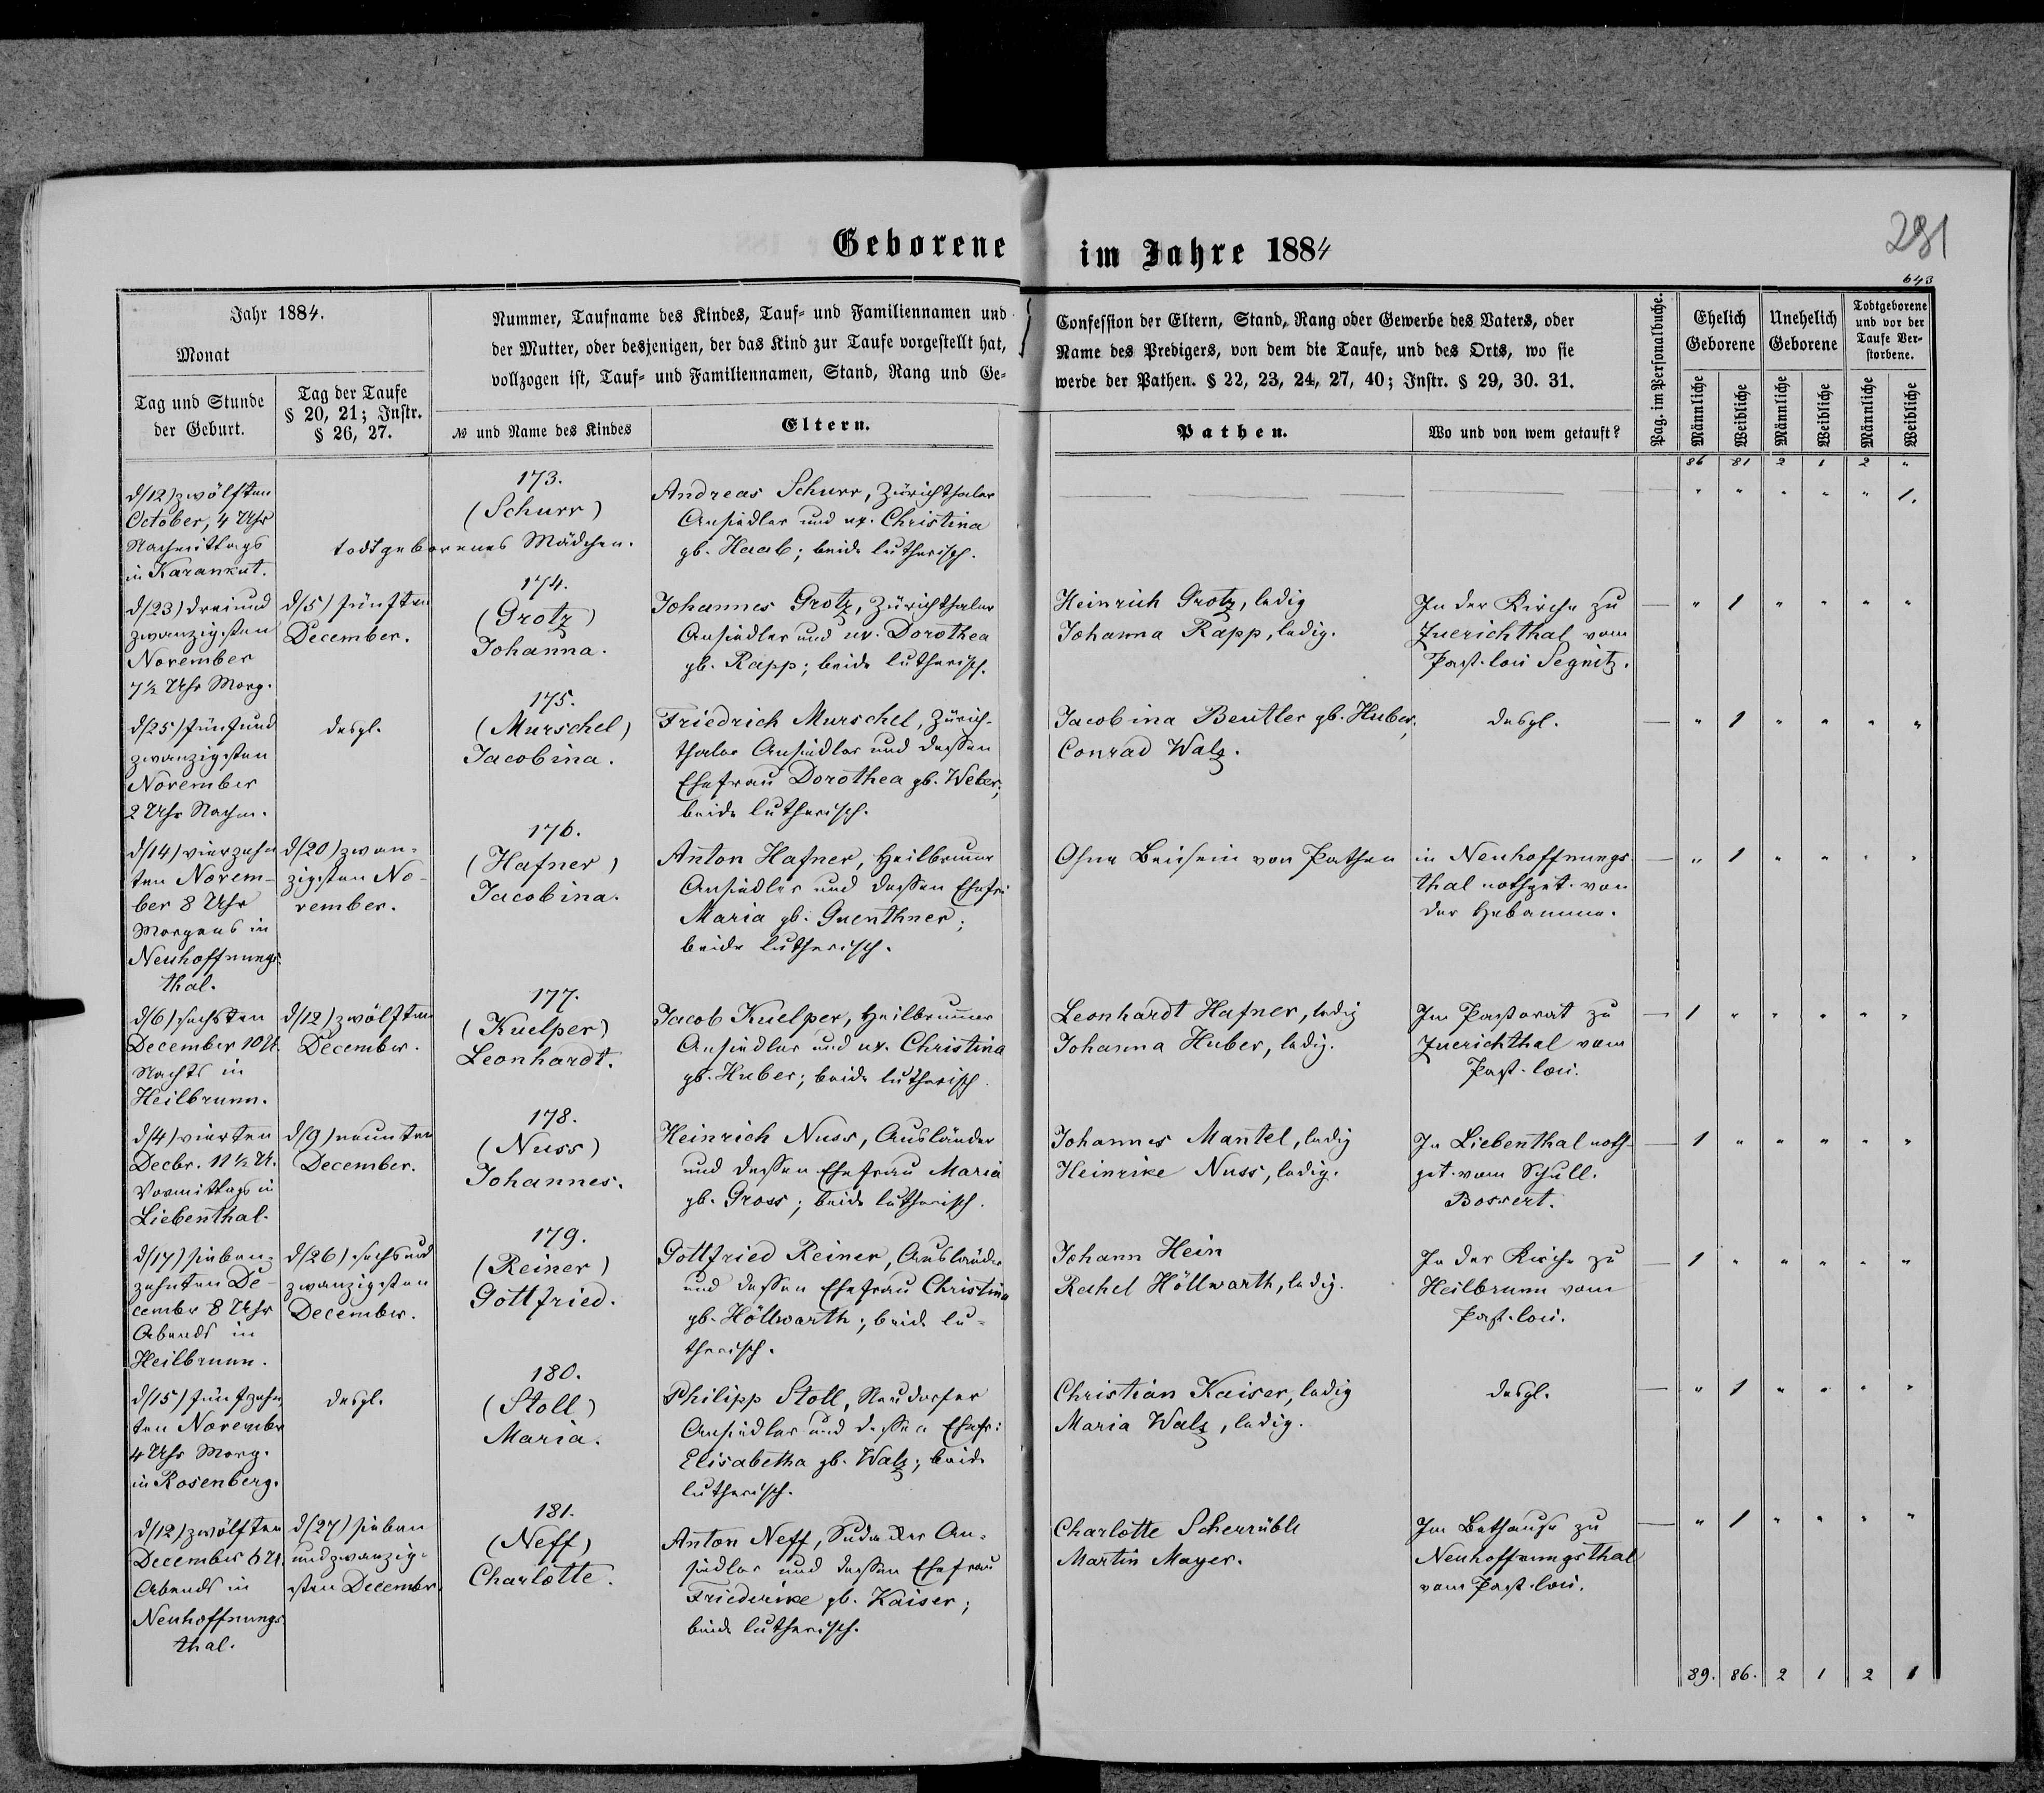 Geborene im Jahre 1884
281
643
Jahr 1884.
Monat
Tag und Stunde
der Geburt.
Tag der Taufe
§ 20, 21; Instr.
§ 26, 27.
Nummer, Taufname des Kindes, Tauf- und Familiennamen und
der Mutter, oder desjenigen, der das Kind zur Taufe vorgestellt hat,
vollzogen ist, Tauf- und Familiennamen, Stand, Rang und Ge-
№ und Name des Kindes
Eltern.
Confession der Eltern, Stand, Rang oder Gewerbe des Vaters, oder
Name des Predigers, von dem die Taufe, und des Orts, wo sie
werde der Pathen. § 22, 23, 24, 27, 40; Instr. § 29, 30. 31.
Pathen.
Wo und von wem getauft?
Pag. im Personalbuche.
Ehelich
Geborene
Unehelich
Geborene
Todtgeborene
und vor der
Taufe Ver-
storbene.
Männliche
Weibliche
Männliche
Weibliche
Männliche
Weibliche
86 81 2 1 2 "
d/12) zwölften
October, 4 Uhr
Nachmittags
in Karankut.
173.
(Schurr)
todtgeborenes Mädchen.
Andreas Schurr, Zürichthaler
Ansiedler und ux. Christina
gb. Haab; beide lutherisch.
" " " " " 1.
d/23) dreiund
zwanzigsten
November
7½ Uhr Morg.
d/5) fünften
December.
174.
(Grotz)
Johanna.
Johannes Grotz, Zürichthaler
Ansiedler und ux. Dorothea
gb. Rapp; beide lutherisch.
Heinrich Grotz, ledig
Johanna Rapp, ledig.
In der Kirche zu
Zuerichthal vom
Past. loci Segnitz.
" 1 " " " "
d/25) fünfund
zwanzigsten
November
2 Uhr Nachm.
desgl.
175.
(Murschel)
Jacobina.
Friedrich Murschel, Zürich-
thaler Ansiedler und dessen
Ehefrau Dorothea gb. Weber;
beide lutherisch.
Jacobina Beutler gb. Huber,
Conrad Walz.
desgl.
" 1 " " " "
d/14) vierzehn
ten Novem-
ber 8 Uhr
Morgens in
Neuhoffnungs-
thal.
d/20) zwan-
zigsten No-
vember.
176.
(Hafner)
Jacobina.
Anton Hafner, Heilbrunner
Ansiedler und dessen Ehefr:
Maria gb. Guenthner;
beide lutherisch.
Ohne Beisein von Pathen
in Neuhoffnungs-
thal nothget. von
der Hebamme.
" 1 " " " "
d/6) sechsten
December 10 U.
Nachts in
Heilbrunn.
d/12) zwölften
December.
177.
(Kuelper)
Leonhardt.
Jacob Kuelper, Heilbrunner
Ansiedler und ux. Christina
gb. Huber; beide lutherisch.
Leonhardt Hafner, ledig
Johanna Huber, ledig.
Im Pastorat zu
Zuerichthal vom
Past. loci.
1 " " " " "
d/4) vierten
Decbr. 11½ U.
Vormittags in
Liebenthal.
d/9) neunten
December.
178.
(Nuss)
Johannes.
Heinrich Nuss, Ausländer
und dessen Ehefrau Maria
gb. Gross; beide lutherisch.
Johannes Mantel, ledig
Heinrike Nuss, ledig.
In Liebenthal noth-
get. vom Schull.
Bossert.
1 " " " " "
d/17) sieben-
zehnten De-
cember 8 Uhr
Abends in
Heilbrunn.
d/26) sechsund
zwanzigsten
December.
179.
(Reiner)
Gottfried.
Gottfried Reiner, Ausländer
und dessen Ehefrau Christina
gb. Höllwarth; beide lu-
therisch.
Johann Hein
Rahel Höllwarth, ledig.
In der Kirche zu
Heilbrunn vom
Past. loci.
1 " " " " "
d/15) fünfzehn
ten November
4 Uhr Morg.
in Rosenberg.
desgl.
180.
(Stoll)
Maria.
Philipp Stoll, Neudorfer
Ansiedler und dessen Ehefr:
Elisabetha gb. Walz; beide
lutherisch.
Christian Kaiser, ledig
Maria Walz, ledig.
desgl.
" 1 " " " "
d/12) zwölften
December 6 U.
Abends in
Neuhoffnungs-
thal.
d/27) sieben
undzwanzig-
sten December
181.
(Neff)
Charlotte.
Anton Neff, Sudaker An-
siedler und dessen Ehefrau
Friederike gb. Kaiser;
beide lutherisch.
Charlotte Scherrüble
Martin Mayer.
Im Bethause zu
Neuhoffnungsthal
vom Past. loci.
" 1 " " " "
89. 86. 2 1 2 1